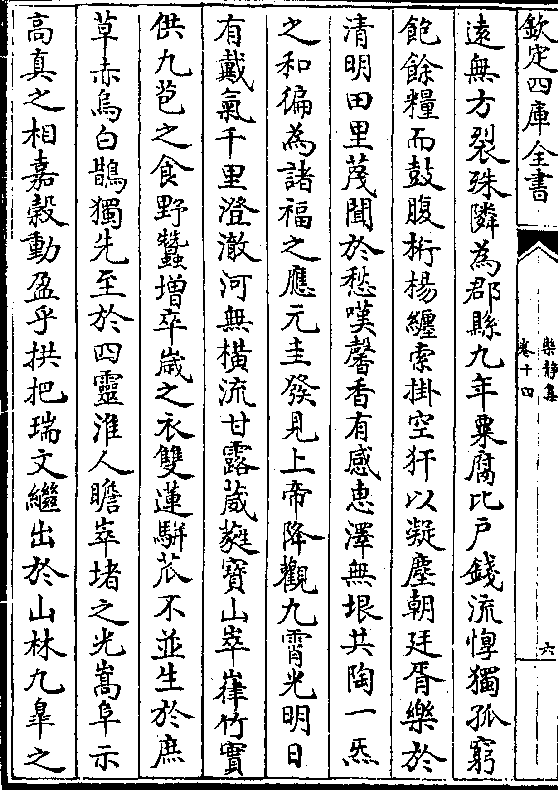 欽定四庫全書
樂静集
卷十四
六
遠無方裂殊隣為郡縣九年粟腐比户錢流惸獨孤窮
飽餘糧而鼓腹桁楊纏索掛空犴以凝塵朝廷胥樂於
清明田里蔑聞於愁嘆馨香有感恵澤無垠共陶一炁
之和徧為諸福之應元圭發見上帝降觀九霄光明日
有戴氣千里澄澈河無横流甘露葳蕤寳山崒嵂竹實
供九苞之食野蠶増卒嵗之衣雙蓮駢苽不並生於庶
草赤烏白鵲獨先至於四靈淮人瞻崒堵之光嵩阜示
高真之相嘉穀動盈乎拱把瑞文繼出於山林九皐之